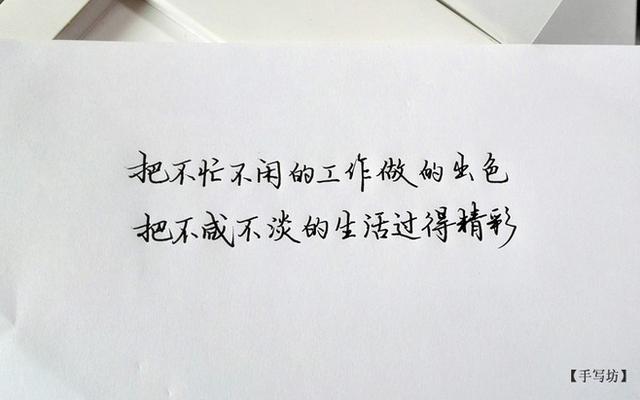 把不忙不闲的工作做的出色
把不咸不淡的生活过得精彩
【手写坊】